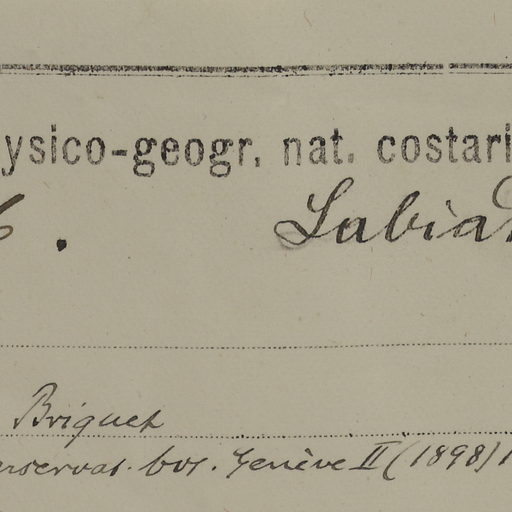 ysico-geogr. nat. costari
6. Labia
Briquet
nservat. bot. Genève II (1898) 1